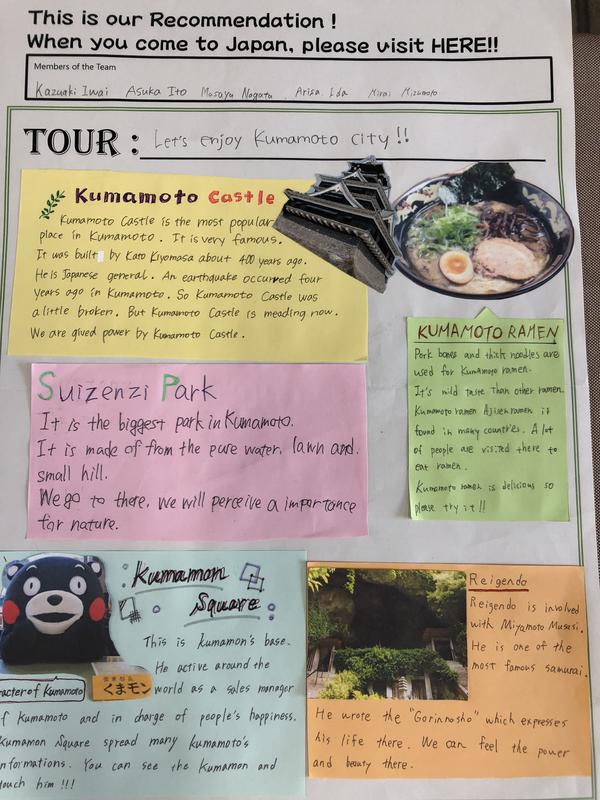 This is our Recommendation !
When you come to Japan, please visit HERE!!
Members of the Team
Kazuaki Iwai Asuka Ito Masaya Nagata Arisa Ida Mirai Mizumoto
TOUR : Let's enjoy Kumamoto city !!
Kumamoto Castle
Kumamoto Castle is the most popular
place in Kumamoto. It is very famous.
It was built by Kato Kiyomasa about 400 years ago.
He is Japanese general. An earthquake occurred four
years ago in Kumamoto. So Kumamoto Castle was
a little broken. But Kumamoto Castle is meading now.
We are gived power by Kumamoto Castle.
KUMAMOTO RAMEN
Pork bones and thick noodles are
used for Kumamoto ramen.
It's mild taste than other ramen.
Kumamoto ramen Ajisen ramen is
found in many countries. A lot
of people are visited there to
eat ramen.
Kumamoto ramen is delicious so
please try it !!
Suizenzi Park
It is the biggest park in Kumamoto.
It is made of from the pure water, lawn and
small hill.
We go to there, we will perceive a importance
for nature.
Kumamon
Square
This is Kumamon's base.
He active around the
world as a sales manager
f Kumamoto and in charge of people's happiness.
Kumamon Square spread many Kumamoto's
nformations. You can see the Kumamon and
touch him !!!
racter of Kumamoto
くまモン
Reigendo
Reigendo is involved
with Miyamoto Musasi.
He is one of the
most famous samurai.
He wrote the "Gorinnosho" which expresses
his life there. We can feel the power
and beauty there.